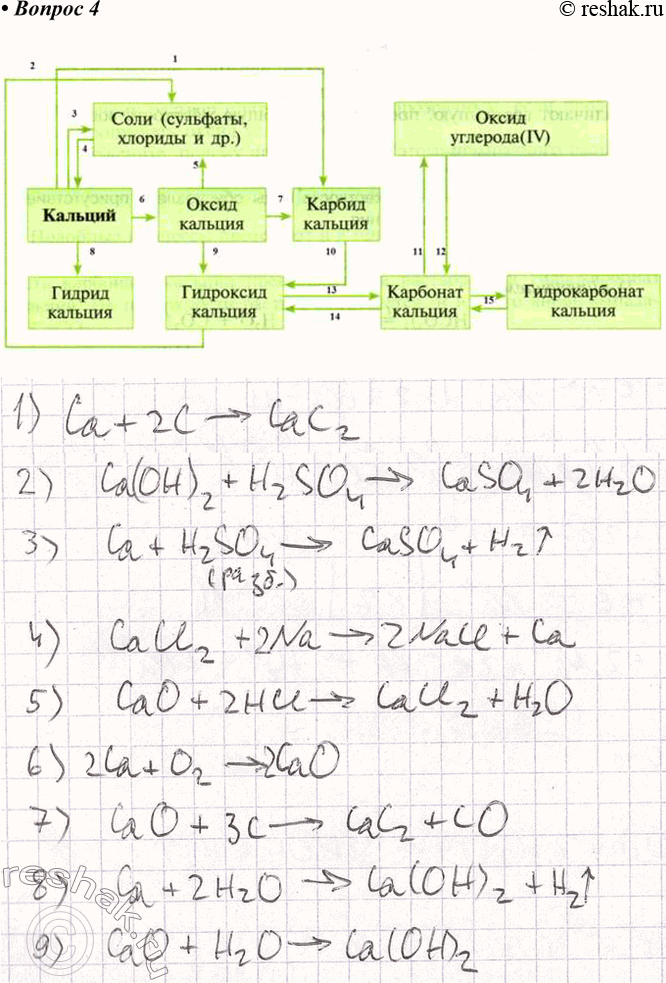 • Вопрос 4
© reshak.ru
1
2
3
4
Соли (сульфаты,
хлориды и др.)
Оксид
углерода(IV)
5
Кальций
6
Оксид
кальция
7
Карбид
кальция
8
9
10
11
12
Гидрид
кальция
Гидроксид
кальция
13
14
Карбонат
кальция
15
Гидрокарбонат
кальция
1) Ca + 2C → CaC₂
2) Ca(OH)₂ + H₂SO₄ → CaSO₄ + 2H₂O
3) Ca + H₂SO₄ → CaSO₄ + H₂↑
(разб.)
4) CaCl₂ + 2Na → 2NaCl + Ca
5) CaO + 2HCl → CaCl₂ + H₂O
6) 2Ca + O₂ → 2CaO
7) CaO + 3C → CaC₂ + CO
8) Ca + 2H₂O → Ca(OH)₂ + H₂↑
9) CaO + H₂O → Ca(OH)₂
reshak.ru